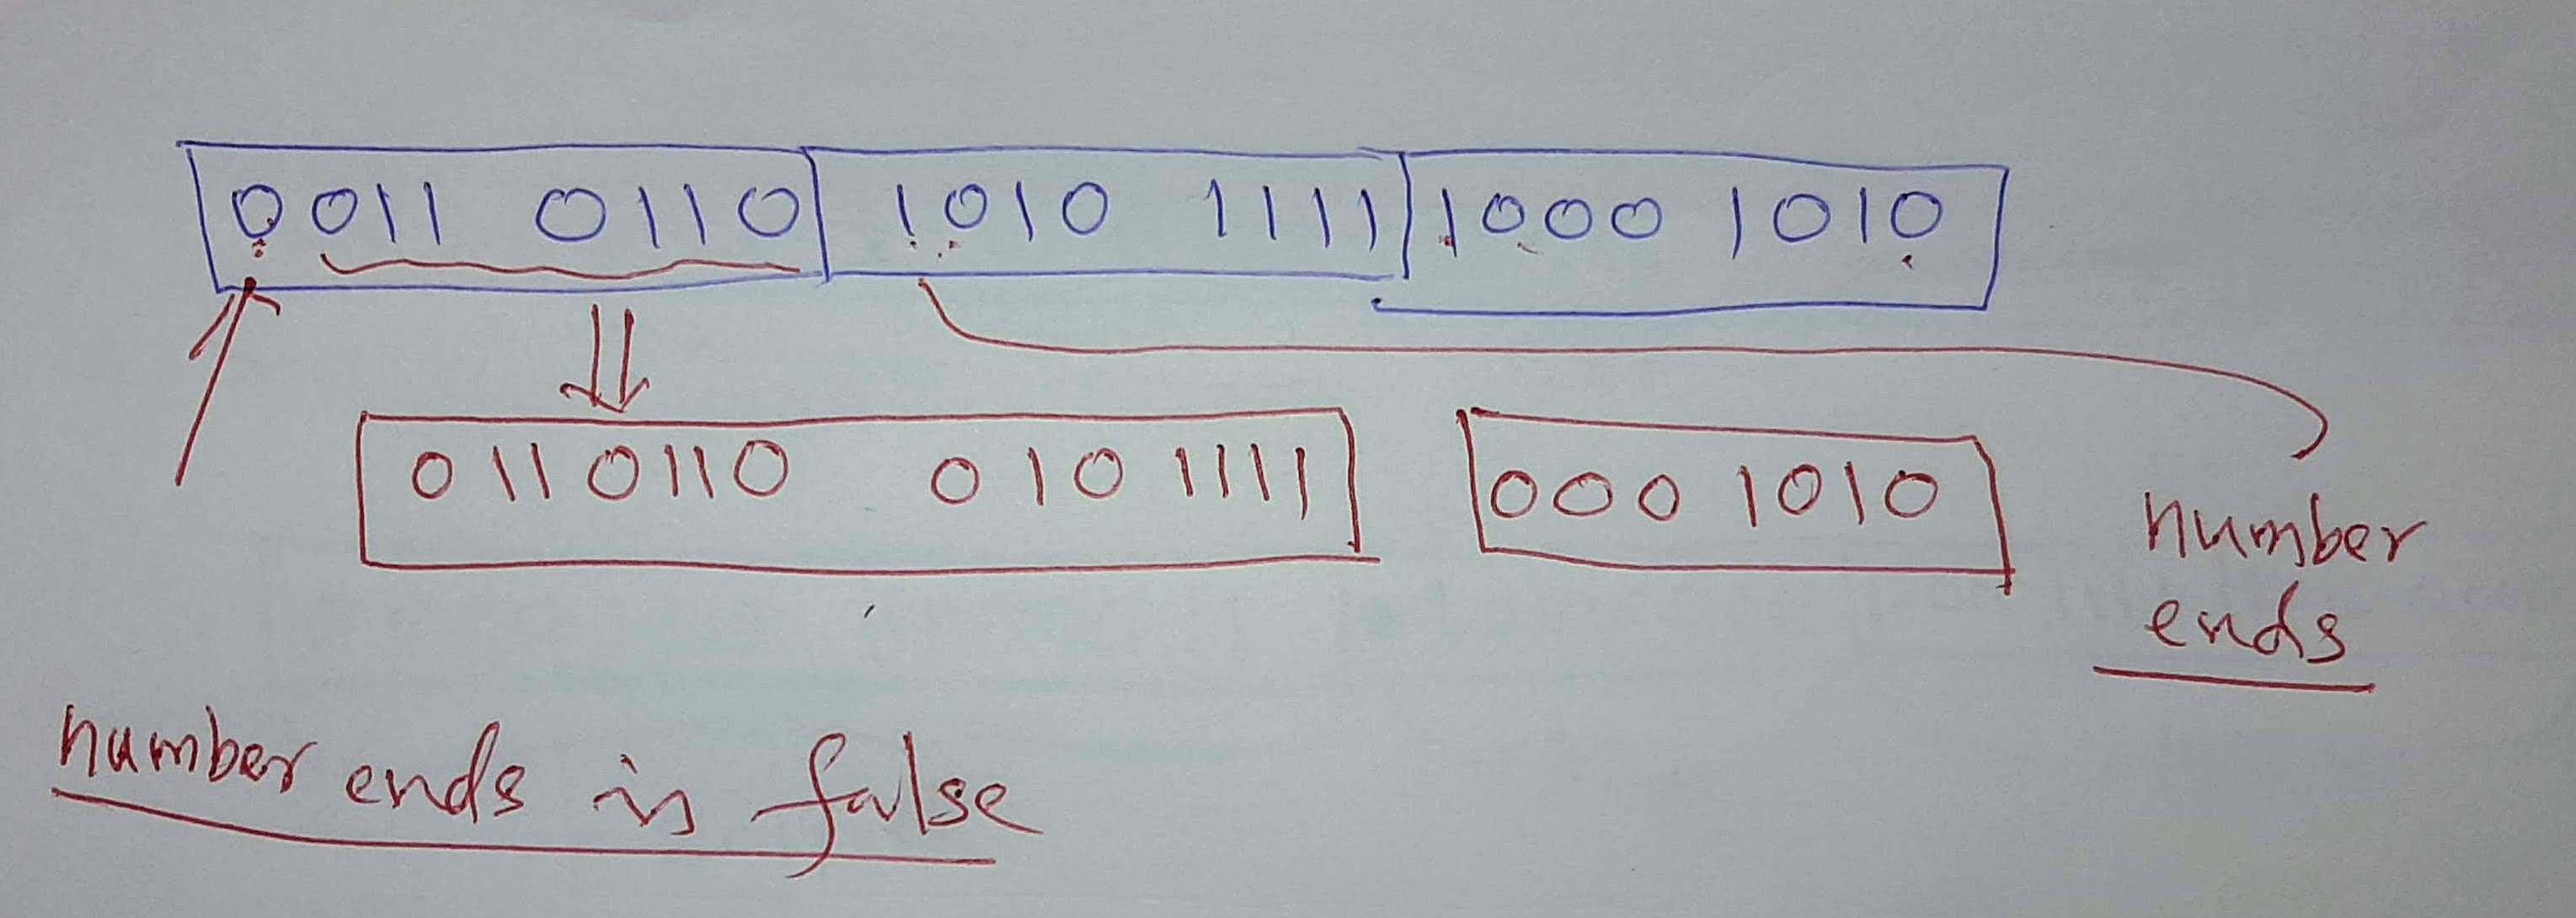 0011 0110 1010 1111 1000 1010
0110110 0101111 0001010
number
ends
number ends is false